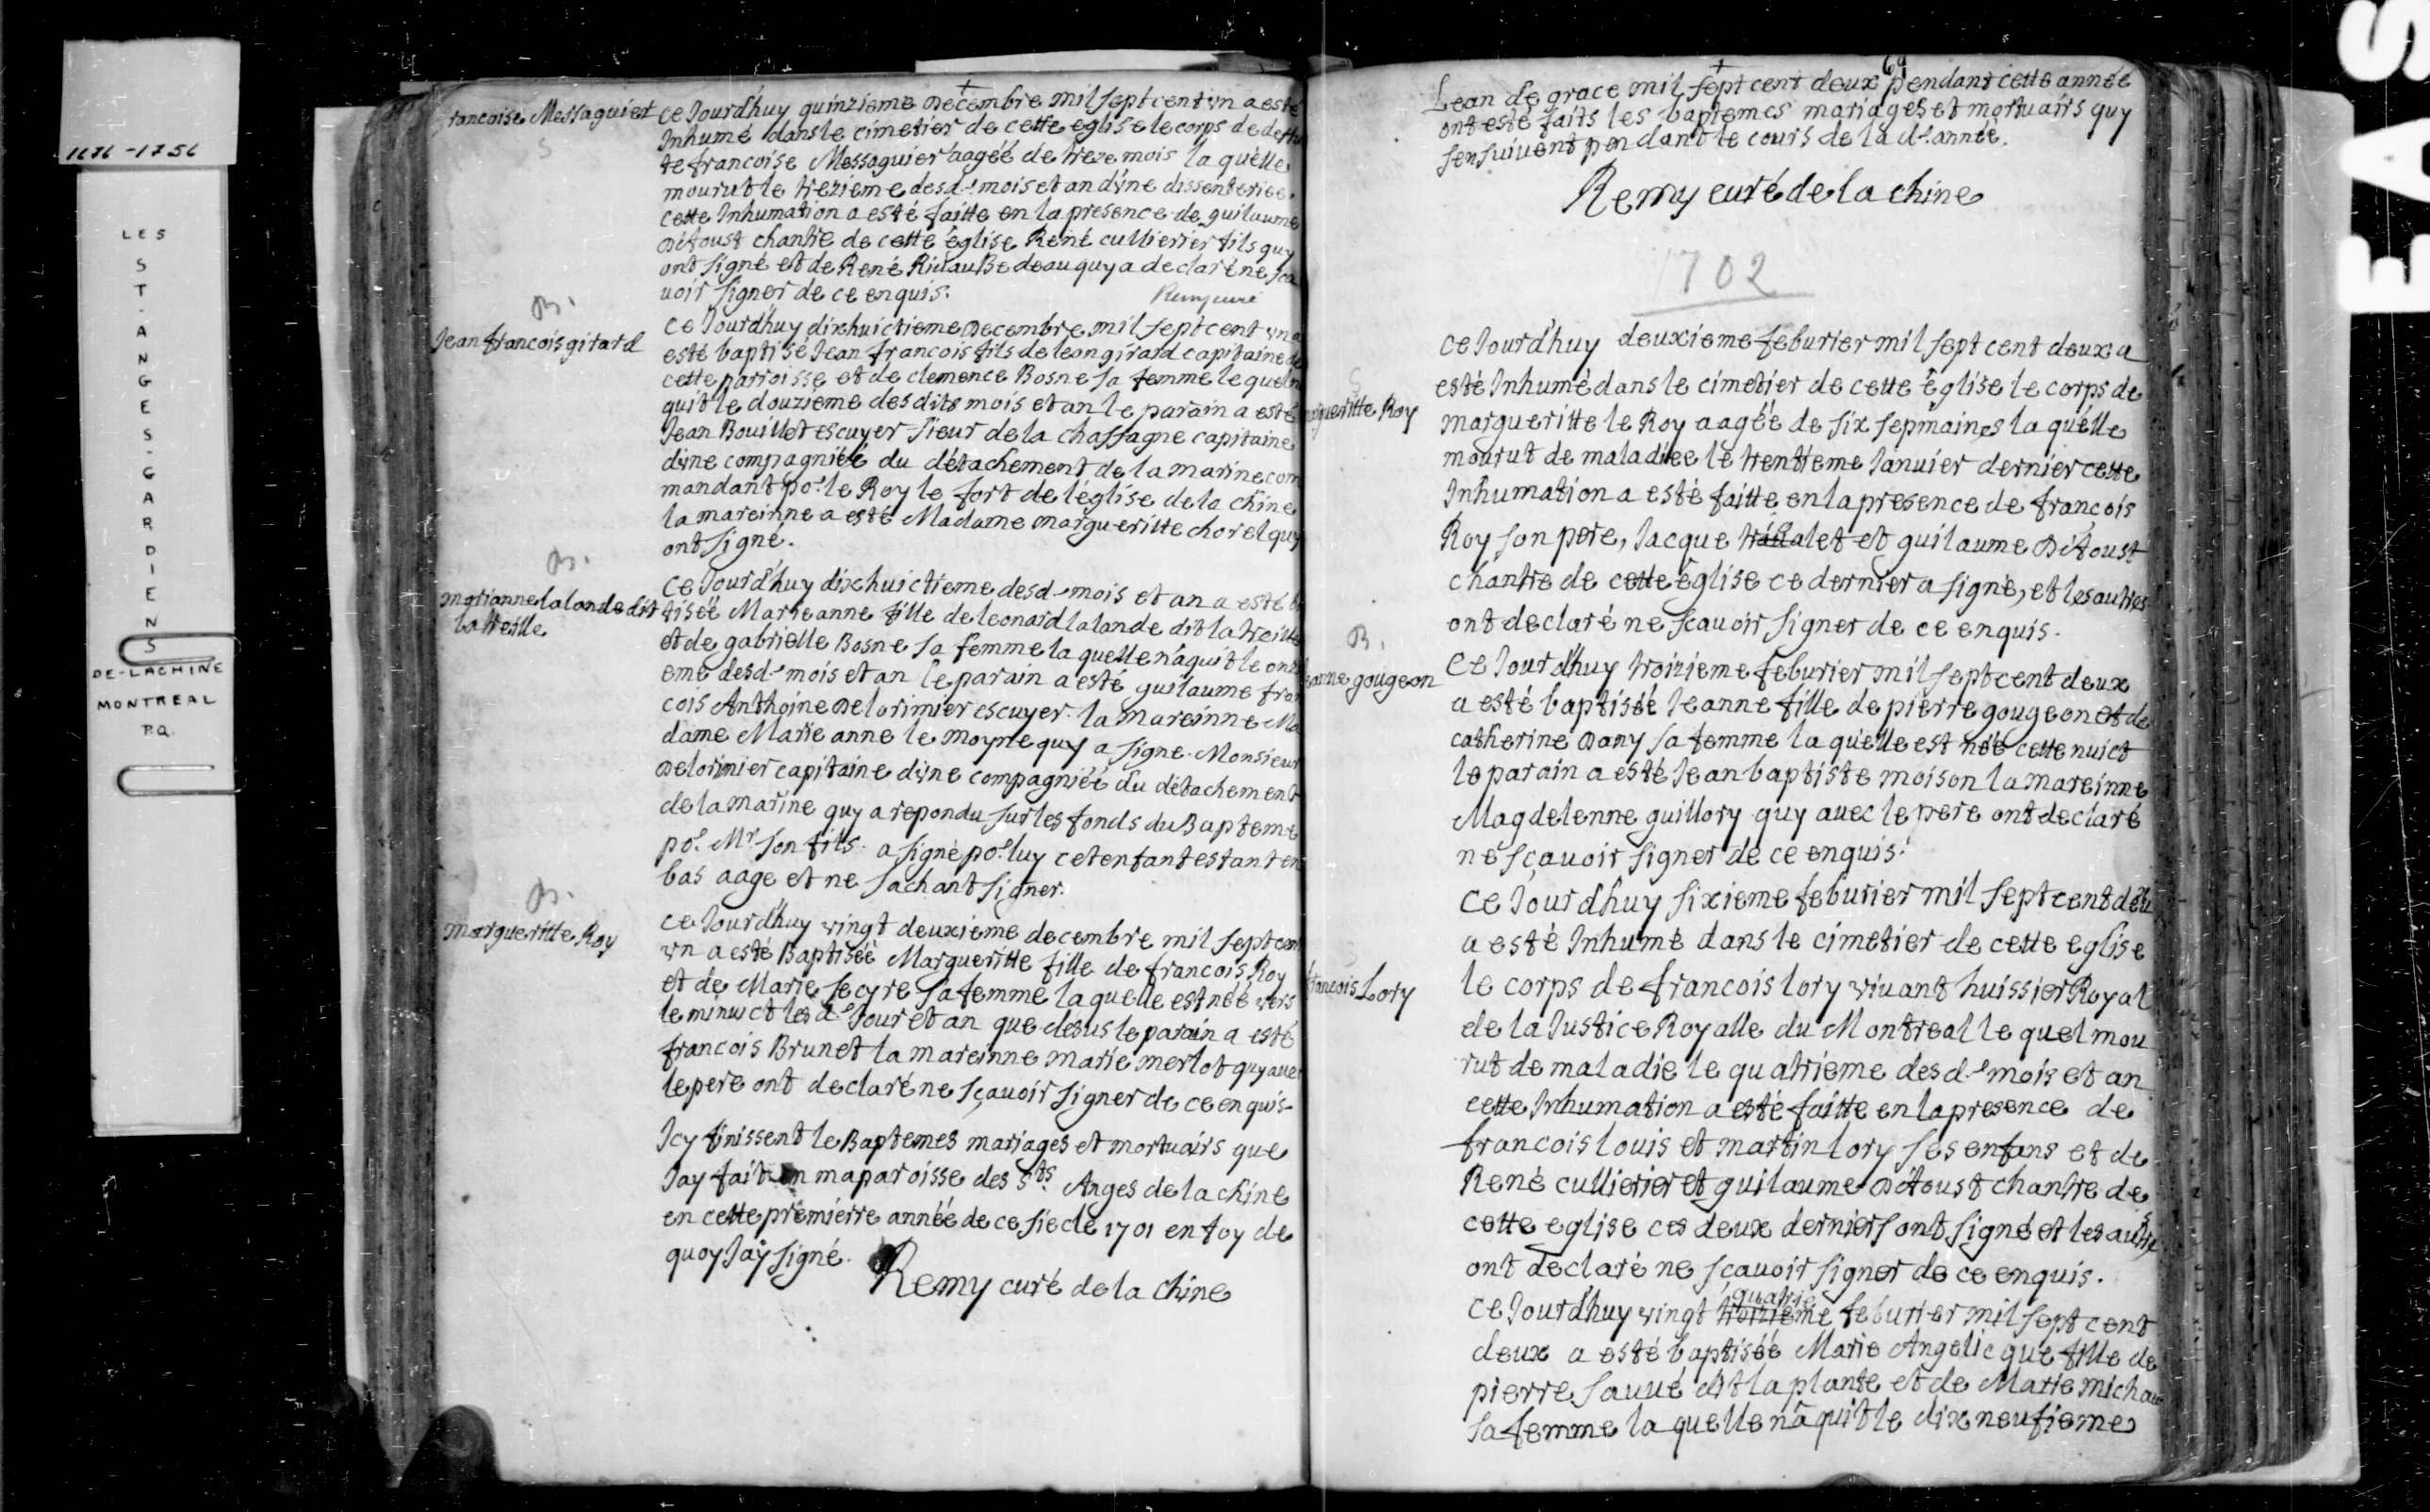 1676-1756
LES
ST-ANGES-GARDIENS
DE-LACHINE
MONTREAL
P.Q.
francoise Messaguier
S
ce Jourd'huy quinzieme decembre mil sept cent vn a esté
Inhumé dans le cimetier de cette eglise le corps de
te francoise Messaguier aagéé de treze mois la quelle
mourut le trezieme desd. mois et an d'vne dissenteriee.
cette Inhumation a esté faitte en la presence de guilaume
détoust chantre de cette église René cullierier fils quy
ont signé et de René Riuau Bedeau quy a declaré ne sca
uoir signer de ce enquis.
Remy curé
B.
Jean francois girard
ce Jourd'huy dixhuictieme decembre mil sept cent vn a
esté baptisé Jean francois fils de leon girard capitaine de
cette parroisse et de clemence Bosne sa femme le quel n
quit le douzieme desdits mois et an le parain a esté
Jean Bouillet escuyer sieur de la chassagne capitaine
dvne compagniéé du détachement de la marine com
mandant po.r le Roy le fort de léglise de la chine
la mareinne a esté Madame margueritte chorel quy
ont signé.
B.
marianne lalonde dit
latreille
ce Jourd'huy dixhuictieme desd. mois et an a esté b
tiséé Marie anne fille de leonard lalande dit latreille
et de gabrielle Bosne sa femme la quelle náquit le onz
eme desd. mois et an le parain a esté guilaume fran
cois Anthoine delorimier escuyer. la mareinne Ma
dame Marie anne le moyne quy a signe. Monsieur
delorimier capitaine dvne compagniéé du détachement
de la marine quy a repondu sur les fonds du Bapteme
po.r Mr son fils. a signé po.r luy cet enfant estant en
bas aage et ne sachant signer.
B.
margueritte Roy
ce Jourd'huy vingt deuxieme decembre mil sept cent
vn a esté Baptiséé Margueritte fille de francois Roy
et de Marie secyre sa femme la quelle est néé vers
le minuict les d. Jour et an que desus le parain a esté
francois Brunet la mareinne marie merlot quy auec
le pere ont declaré ne sçauoir signer de ce enquis-
Icy finissent le Baptemes mariages et mortuairs que
Jay fait en ma paroisse des Sts. Anges de la chine
en cette premierre annéé de ce siecle 1701 en foy de
quoy Jay signé. Remy curé de la chine
69
Lean de grace mil sept cent deux pendant cette année
ont esté faits les baptemes mariages et mortuairs quy
sensuiuent pendant le cours de la d. année.
Remy curé de la chine
1702
S
margueritte Roy
ce Jourd'huy deuxieme feburier mil sept cent deux a
esté Inhumé dans le cimetier de cette église le corps de
margueritte le Roy aagéé de six sepmaines la quélle
mourut de maladiee le trentieme Januier dernier cette
Inhumation a esté faitte en la presence de francois
Roy son pere, Jacque et guilaume détoust
chantre de cette église ce dernier a signé, et les autres
ont declaré ne scauoir signer de ce enquis.
B.
Jeanne gougeon
ce Jourd'huy troizieme feburier mil sept cent deux
a esté baptiséé Jeanne fille de pierre gougeon et de
catherine dany sa femme la quélle est néé cette nuict
le parain a esté Jean baptiste moison la mareinne
Magdelenne guillory quy auec le pere ont declaré
ne sçauoir signer de ce enquis.
S
francois Lory
ce Jourd'huy sixieme feburier mil sept cent deu
a esté Inhumé dans le cimetier de cette eglise
le corps de francois lory viuant huissier Royal
de la Justice Royalle du Montreal le quel mou
rut de maladie le quatrieme desd. mois et an
cette Inhumation a esté faitte en la presence de
francois louis et martin lory ses enfans et de
René cullierier et guilaume détoust chantre de
cette eglise ces deux derniers ont signé et les autres
ont declaré ne sçauoir signer de ce enquis.
quatrie
ce Jourd'huy vingt troizieme feburier mil sept cent
deux a esté baptiséé Marie Angelic que fille de
pierre sauué dit la plante et de Marie michau
sa femme la quelle náquit le dix neufieme